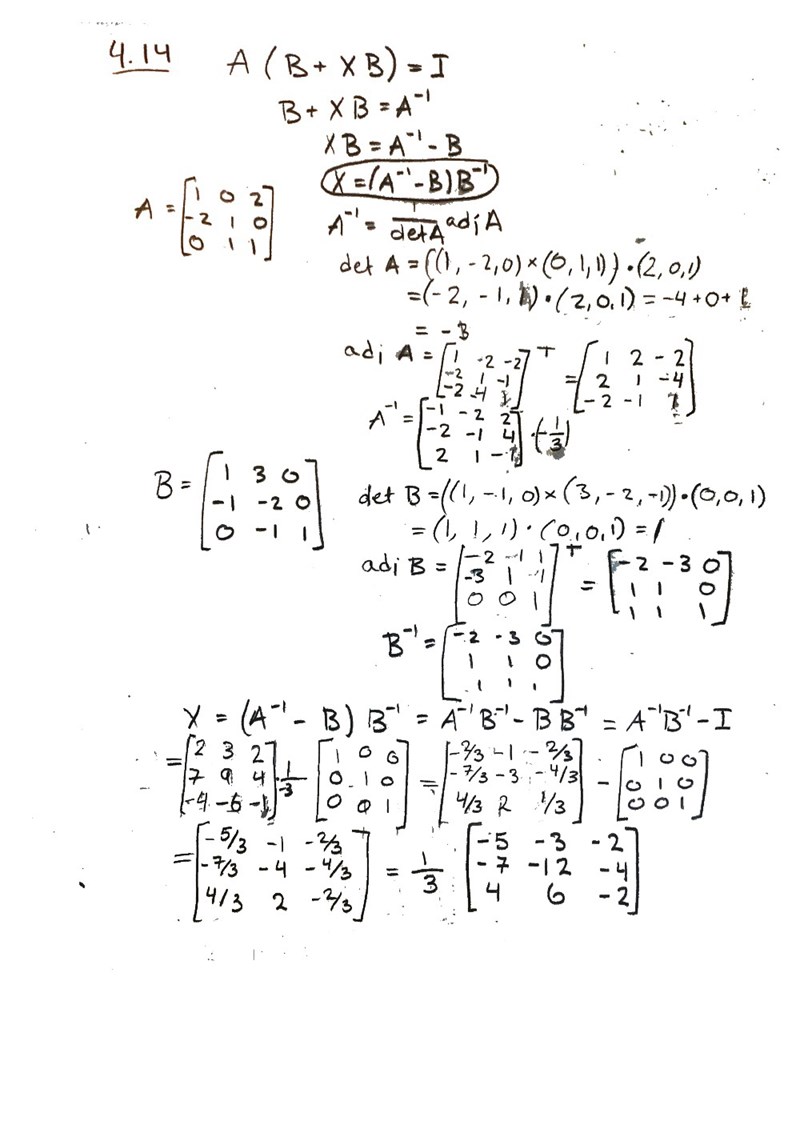 4.14 A (B + XB) = I
B + XB = A⁻¹
XB = A⁻¹ - B
X = (A⁻¹ - B) B⁻¹
A = [1 0 2; -2 1 0; 0 1 1] A⁻¹ = 1/detA adj A
det A = ((1, -2, 0) × (0, 1, 1)) • (2, 0, 1)
= (-2, -1, 1) • (2, 0, 1) = -4 + 0 + 1
= -3
adj A = [1 -2 -2; -2 1 -1; -2 -4 1]ᵀ = [1 2 -2; 2 1 -4; -2 -1 1]
A⁻¹ = [-1 -2 2; -2 -1 4; 2 1 -1] • (-1/3)
B = [1 3 0; -1 -2 0; 0 -1 1] det B = ((1, -1, 0) × (3, -2, -1)) • (0, 0, 1)
= (1, 1, 1) • (0, 0, 1) = 1
adj B = [-2 -1 1; -3 1 -1; 0 0 1]ᵀ = [-2 -3 0; 1 1 0; 1 1 1]
B⁻¹ = [-2 -3 0; 1 1 0; 1 1 1]
X = (A⁻¹ - B) B⁻¹ = A⁻¹B⁻¹ - BB⁻¹ = A⁻¹B⁻¹ - I
= [2 3 2; 7 9 4; -4 -6 -1] 1/-3 - [1 0 0; 0 1 0; 0 0 1] = [-2/3 -1 -2/3; -7/3 -3 -4/3; 4/3 2 1/3] - [1 0 0; 0 1 0; 0 0 1]
= [-5/3 -1 -2/3; -7/3 -4 -4/3; 4/3 2 -2/3] = 1/3 [-5 -3 -2; -7 -12 -4; 4 6 -2]